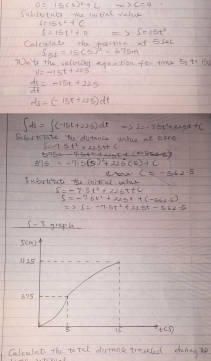 0 = 15(0)² + C ⟶ C = 0
Substitute the initial value
S = 15t² + C
S = 15t² + 0 ⟶ S = 15t²
Calculate the position at 5sec
S = 15(5)² = 375m
Write the velocity equation for time 5s to 15s
v = -15t + 225
ds = -15t + 225
dt
ds = (-15t + 225)dt
∫ds = ∫(-15t + 225)dt ⟶ S = -7.5t² + 225t + C
Substitute the distance value at 5sec
S = -7.5t² + 225t + C
375 = -7.5(5)² + 225(5) + C
C = -562.5
Substitute the initial value
S = -7.5t² + 225t + C
S = -7.5t² + 225t + (-562.5)
⟹ S = -7.5t² + 225t - 562.5
S-T graph
S(m)
1125
375
5 15 t(s)
Calculate the total distance traveled during the